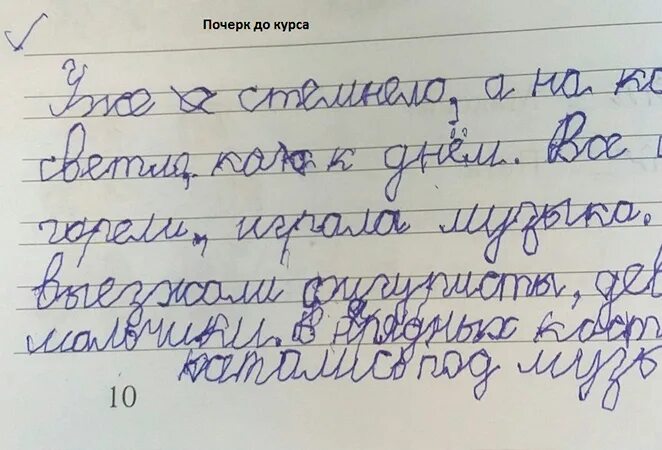 Почерк до курса
Уже стемнело, а на ко
светло, как днём. Все
горели, играла музыка.
выезжали фигуристы, дев
мальчики. В нарядных кост
катались под музы
10